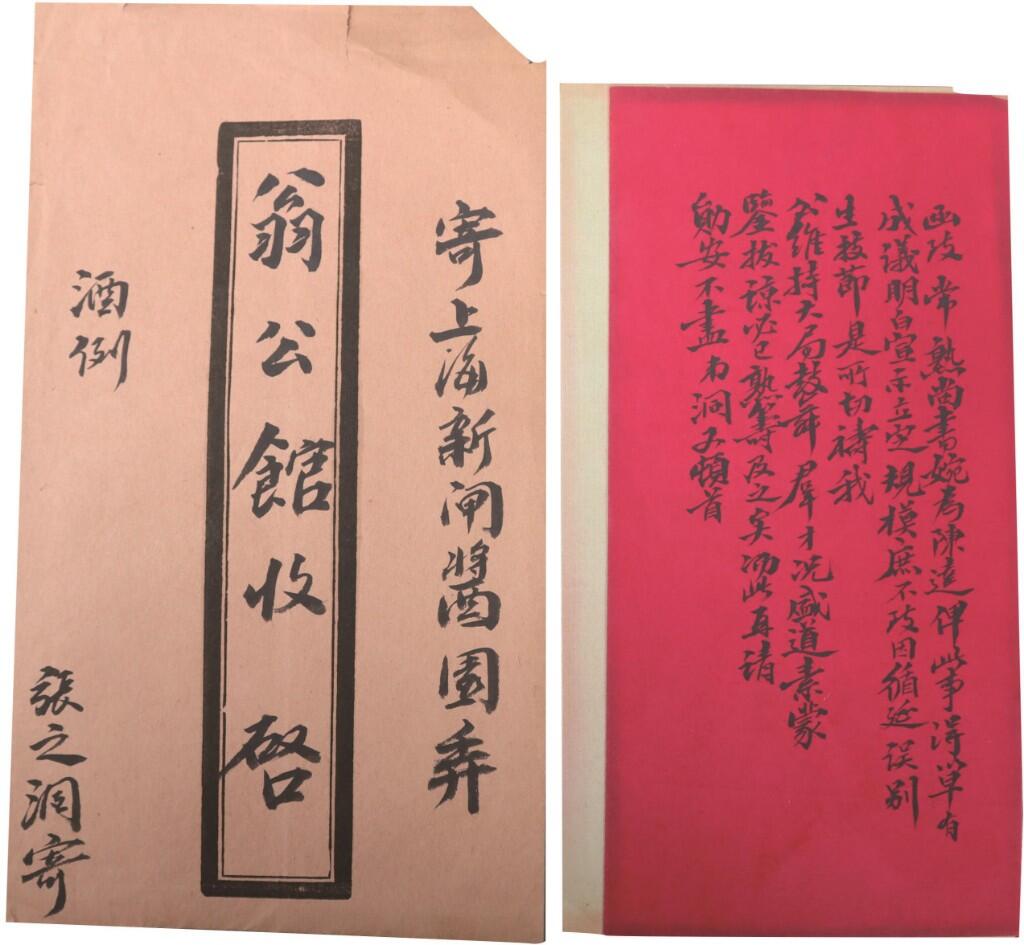 寄上海新闸醬園弄
翁公館收啓
酒例
張之洞寄
函致常熟尚書婉為陳達俾此事得早有
成議明白宣示立定規模庶不致因循延误别
生枝節是所切禱我
公維持大局教育羣才况盛道素蒙
鑒拔諒必已熟籌及之矣渤此再请
勛安不盡弟洞又頓首